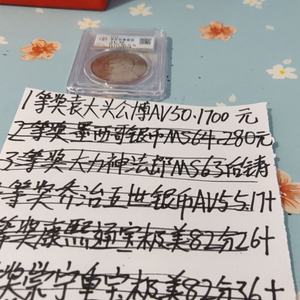 1等奖袁大头公博AV50.1700元
2等奖墨西哥银币MS64.280元
3等奖大力神法郎MS63
等奖乔治五世银币AV55.17十
等奖康熙通宝极美82分26十
奖崇宁重宝极美82分36十